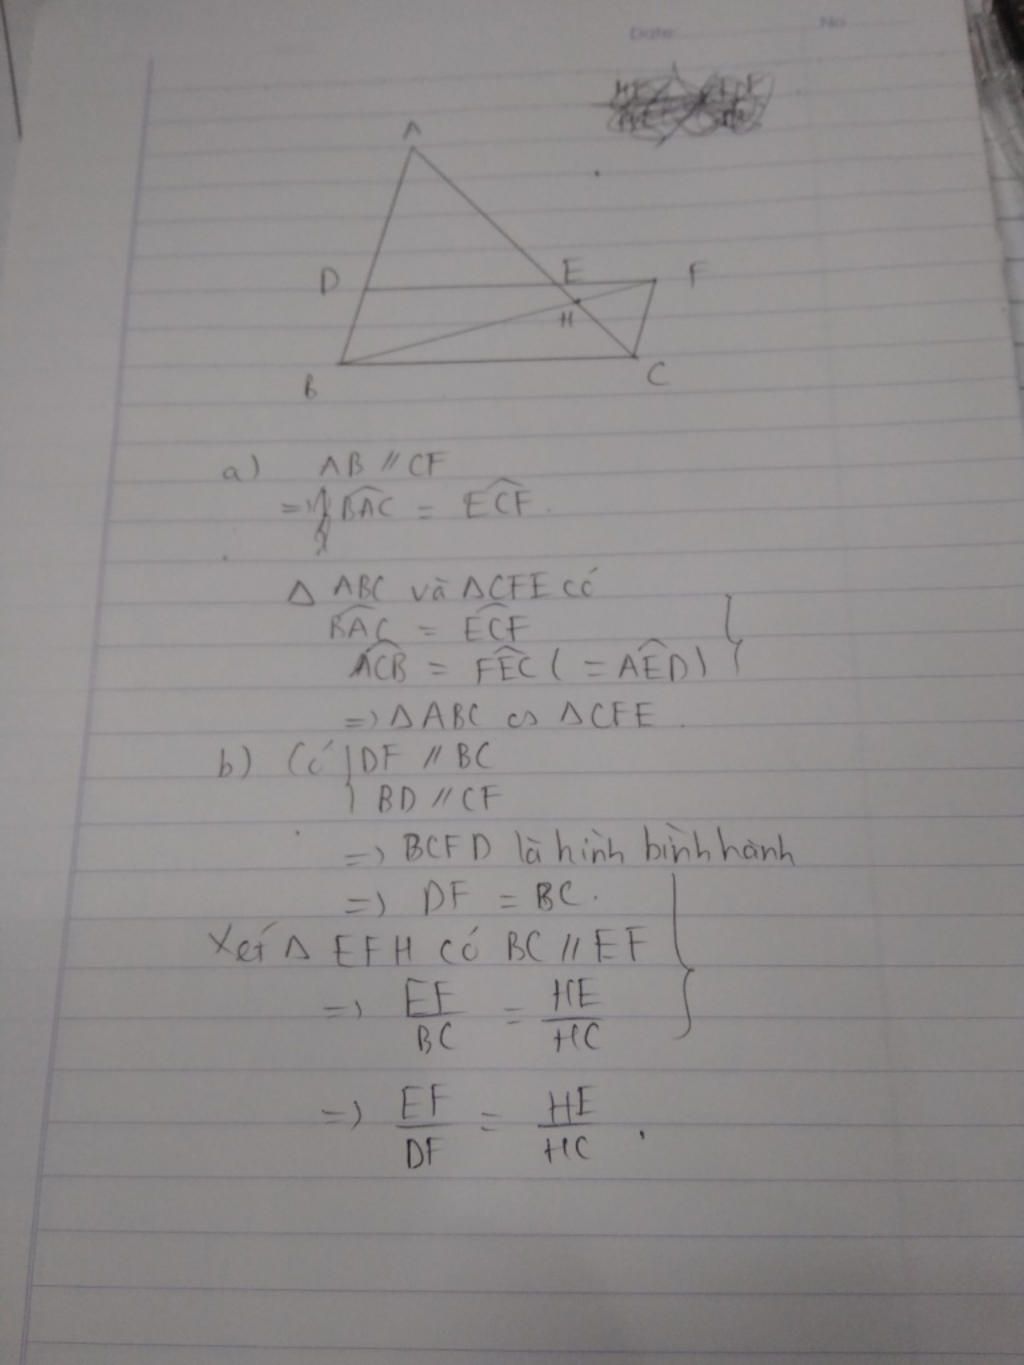 Date: No
A
D E F
H
B C
a) AB // CF
=> BAC = ECF.
Δ ABC và ΔCFE có
BAC = ECF
ACB = FEC ( = AED)
=> Δ ABC ∽ ΔCFE.
b) Có DF // BC
BD // CF
=> BCFD là hình bình hành
=> DF = BC.
Xét Δ EFH có BC // EF
=> EF/BC = HE/HC
=> EF/DF = HE/HC.